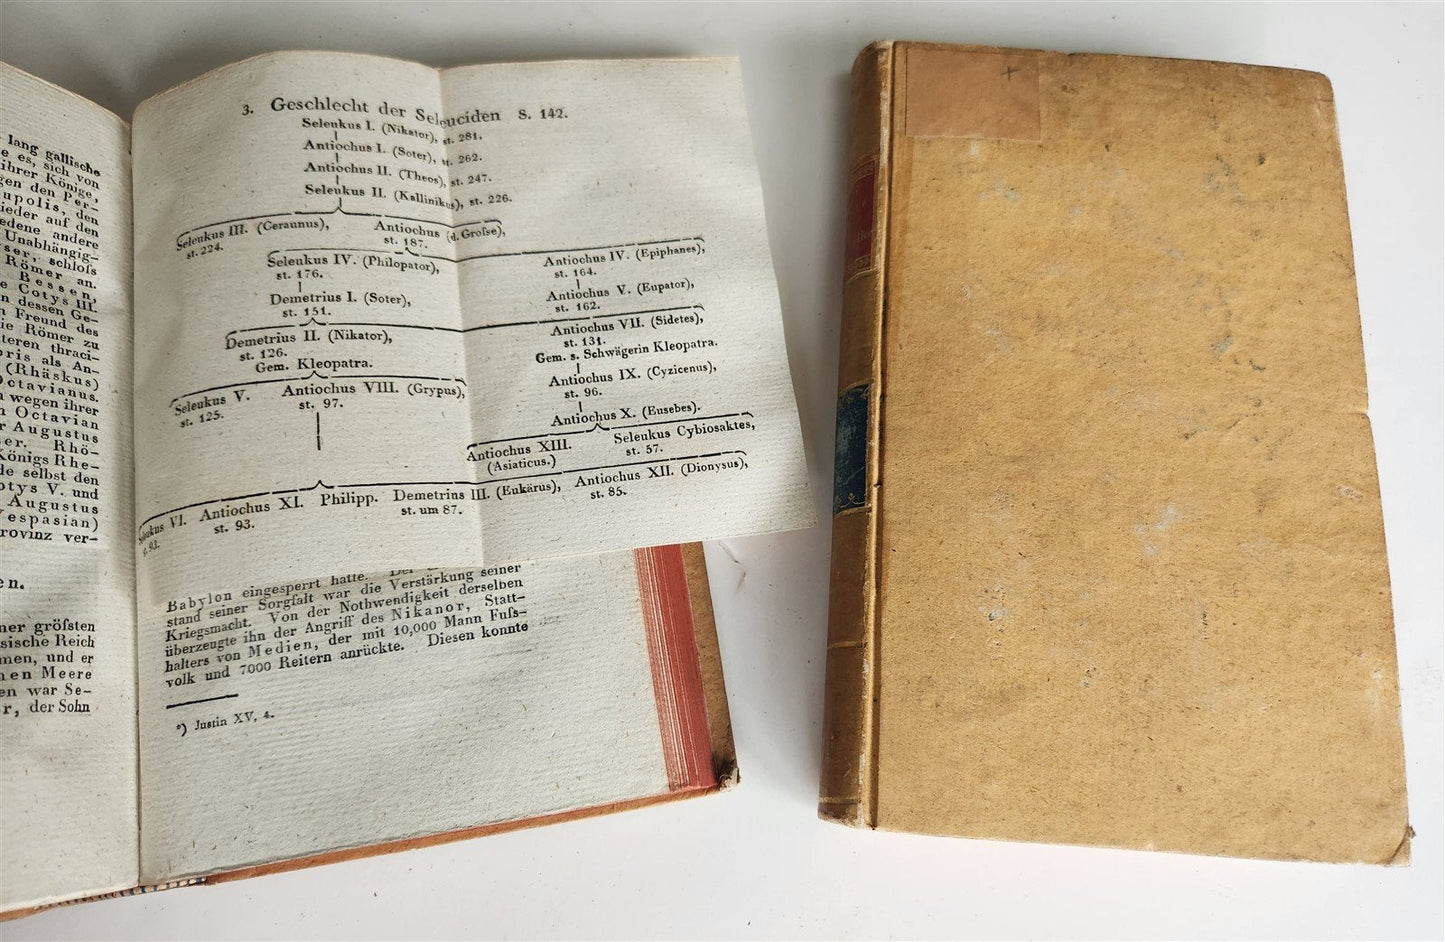 lang gallische
e es, sich von
ihrer Könige,
gen den Per-
upolis, den
ieder auf den
edene andere
Unabhängig-
ser, schloſs
Römer an.
Bessen,
e Cotys III.
n dessen Ge-
n Freund des
ie Römer zu
teren thraci-
oris als An-
(Rhäskus)
Octavianus.
a wegen ihrer
n Octavian
r Augustus
ser. Rhö-
Königs Rhe-
de selbst den
otys V. und
Augustus
Vespasian)
rovinz ver-
en.
ner gröſsten
sische Reich
men, und er
hen Meere
en war Se-
r, der Sohn
3. Geschlecht der Seleuciden S. 142.
Seleukus I. (Nikator), st. 281.
Antiochus I. (Soter), st. 262.
Antiochus II. (Theos), st. 247.
Seleukus II. (Kallinikus), st. 226.
Seleukus III. (Ceraunus), Antiochus (d. Groſse),
st. 224. st. 187.
Seleukus IV. (Philopator), Antiochus IV. (Epiphanes),
st. 176. st. 164.
Demetrius I. (Soter), Antiochus V. (Eupator),
st. 151. st. 162.
Demetrius II. (Nikator), Antiochus VII. (Sidetes),
st. 126. st. 131.
Gem. Kleopatra. Gem. s. Schwägerin Kleopatra.
Seleukus V. Antiochus VIII. (Grypus), Antiochus IX. (Cyzicenus),
st. 125. st. 97. st. 96.
Antiochus X. (Eusebes).
Antiochus XIII. Seleukus Cybiosaktes,
(Asiaticus.) st. 57.
Seleukus VI. Antiochus XI. Philipp. Demetrius III. (Eukärus), Antiochus XII. (Dionysus),
st. 93. st. 93. st. um 87. st. 85.
Babylon eingesperrt hatte. Der
stand seiner Sorgfalt war die Verstärkung seiner
Kriegsmacht. Von der Nothwendigkeit derselben
überzeugte ihn der Angriff des Nikanor, Statt-
halters von Medien, der mit 10,000 Mann Fuſs-
volk und 7000 Reitern anrückte. Diesen konnte
*) Justin XV, 4.